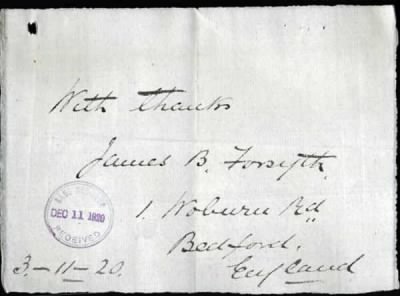 With thanks
James B. Forsyth.
1, Woburn Rd
Bedford.
England
3-11-20.
DEC 11 1920
RECEIVED